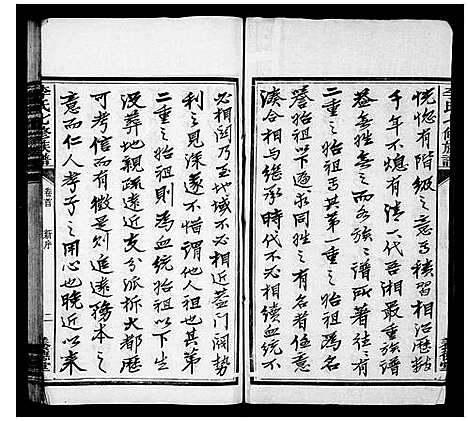 恍惚有階級之意可積習相沿歷數
千年不熄有清一代吾湘最重族譜
卷姓卷之而各族之譜成著往往有
二重之始祖 其第一重之始祖為名
譽始祖下過求同姓之有名者任意
湊合相與继承時代不必相續血统不
必相関乃至地域不必相近蓋门阀势
利之見深遂不惜谓他人祖也其第
二重之始祖則為血统始祖以下生
没葬地親疏遠近支分派析大都歷
可考信而有徵是則追遠務本之
意而仁人孝子之用心也晚近以来
李氏七修族譜
卷首
新序
二